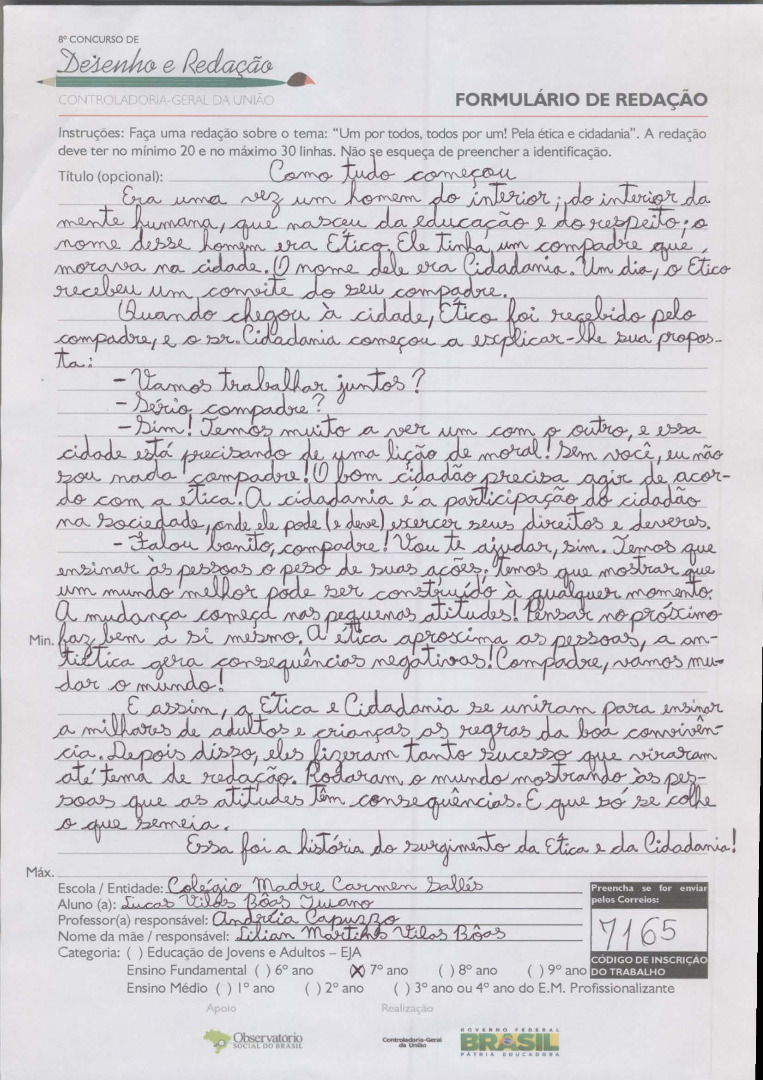 8º CONCURSO DE
Desenho e Redação
CONTROLADORIA-GERAL DA UNIÃO
FORMULÁRIO DE REDAÇÃO
Instruções: Faça uma redação sobre o tema: “Um por todos, todos por um! Pela ética e cidadania”. A redação
deve ter no mínimo 20 e no máximo 30 linhas. Não se esqueça de preencher a identificação.
Título (opcional): Como tudo começou
Era uma vez um homem do interior; do interior da
mente humana, que nasceu da educação e do respeito; o
nome desse homem era Ético. Ele tinha um compadre que
morava na cidade. O nome dele era Cidadania. Um dia, o Ético
recebeu um convite do seu compadre.
Quando chegou à cidade, Ético foi recebido pelo
compadre, e o sr. Cidadania começou a explicar-lhe sua propos-
ta:
- Vamos trabalhar juntos?
- Sério compadre?
- Sim! Temos muito a ver um com o outro, e essa
cidade está precisando de uma lição de moral! Sem você, eu não
sou nada compadre! O bom cidadão precisa agir de acor-
do com a ética! A cidadania é a participação do cidadão
na sociedade, onde ele pode (e deve) exercer seus direitos e deveres.
- Falou bonito, compadre! Vou te ajudar, sim. Temos que
ensinar às pessoas o peso de suas ações. Temos que mostrar que
um mundo melhor pode ser construído à qualquer momento.
A mudança começa nas pequenas atitudes! Pensar no próximo
Min. faz bem a si mesmo. A ética aproxima as pessoas, a an-
tiética gera consequências negativas! Compadre, vamos mu-
dar o mundo!
E assim, a Ética e Cidadania se uniram para ensinar
a milhares de adultos e crianças as regras da boa convivên-
cia. Depois disso, eles fizeram tanto sucesso que viraram
até tema de redação. Rodaram o mundo mostrando às pes-
soas que as atitudes têm consequências. E que só se colhe
o que semeia.
Essa foi a história do surgimento da Ética e da Cidadania!
Máx.
Escola / Entidade: Colégio Madre Carmen Sallés
Aluno (a): Lucas Vilas Bôas Tuiano
Professor(a) responsável: Andréia Capuzzo
Nome da mãe / responsável: Lilian Martins Vilas Bôas
Preencha se for enviar
pelos Correios:
7165
CÓDIGO DE INSCRIÇÃO
DO TRABALHO
Categoria: ( ) Educação de Jovens e Adultos – EJA
Ensino Fundamental ( ) 6º ano (X) 7º ano ( ) 8º ano ( ) 9º ano
Ensino Médio ( ) 1º ano ( ) 2º ano ( ) 3º ano ou 4º ano do E.M. Profissionalizante
Apoio
Realização
Observatório
SOCIAL DO BRASIL
Controladoria-Geral
da União
GOVERNO FEDERAL
BRASIL
PÁTRIA EDUCADORA